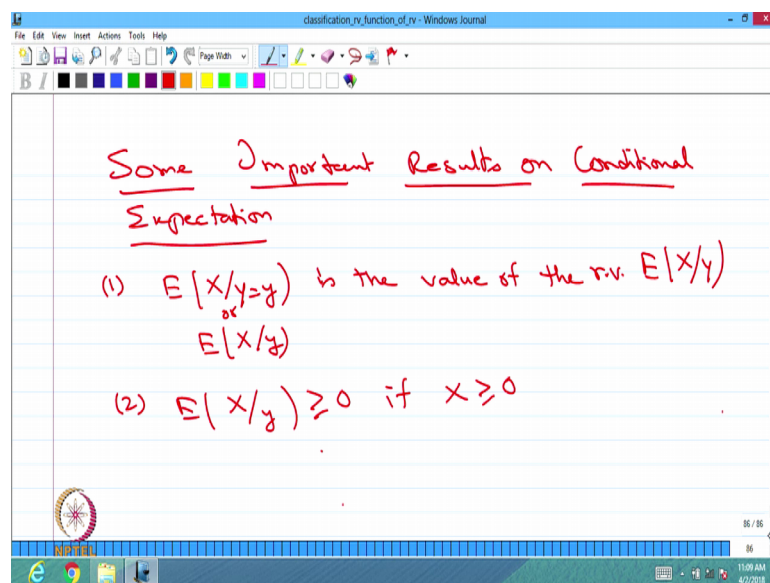 classification_rv_function_of_rv - Windows Journal
File Edit View Insert Actions Tools Help
Page Width
B I
Some Important Results on Conditional
Expectation
(1) E(X/Y=y) is the value of the r.v. E(X/Y)
or
E(X/y)
(2) E(X/y) ≥ 0 if X ≥ 0
NPTEL
86 / 86
86
11:09 AM
4/2/2018